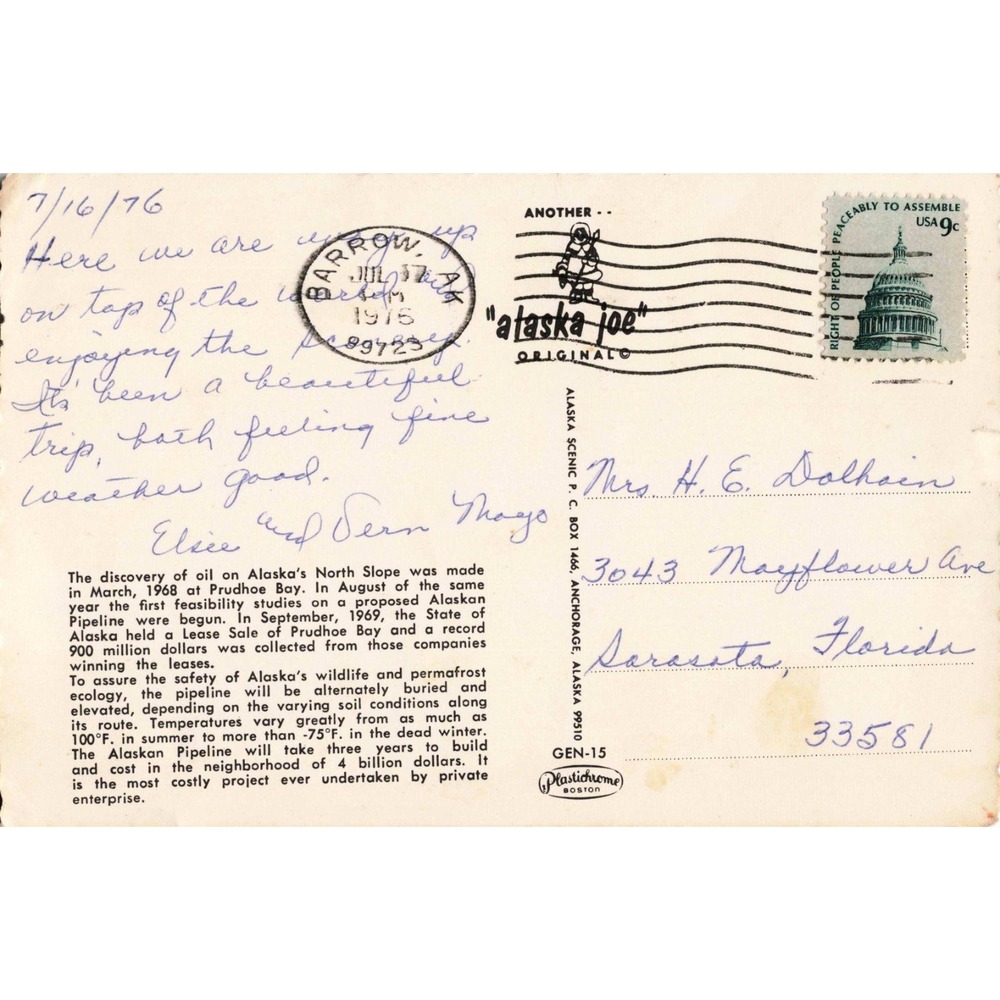 7/16/76
Here we are way up
on top of the world and
enjoying the scenery.
It's been a beautiful
trip, both feeling fine
weather good.
Elsie and Vern Mayo
The discovery of oil on Alaska's North Slope was made
in March, 1968 at Prudhoe Bay. In August of the same
year the first feasibility studies on a proposed Alaskan
Pipeline were begun. In September, 1969, the State of
Alaska held a Lease Sale of Prudhoe Bay and a record
900 million dollars was collected from those companies
winning the leases.
To assure the safety of Alaska's wildlife and permafrost
ecology, the pipeline will be alternately buried and
elevated, depending on the varying soil conditions along
its route. Temperatures vary greatly from as much as
100°F. in summer to more than -75°F. in the dead winter.
The Alaskan Pipeline will take three years to build
and cost in the neighborhood of 4 billion dollars. It
is the most costly project ever undertaken by private
enterprise.
BARROW, AK
JUL 17
1976
99723
ANOTHER - -
"alaska joe"
ORIGINAL©
RIGHT OF PEOPLE PEACEABLY TO ASSEMBLE
USA 9c
ALASKA SCENIC P. C. BOX 1466, ANCHORAGE, ALASKA 99510
GEN-15
Plastichrome
BOSTON
Mrs. H. E. Dolhain
3043 Mayflower Ave
Sarasota, Florida
33581